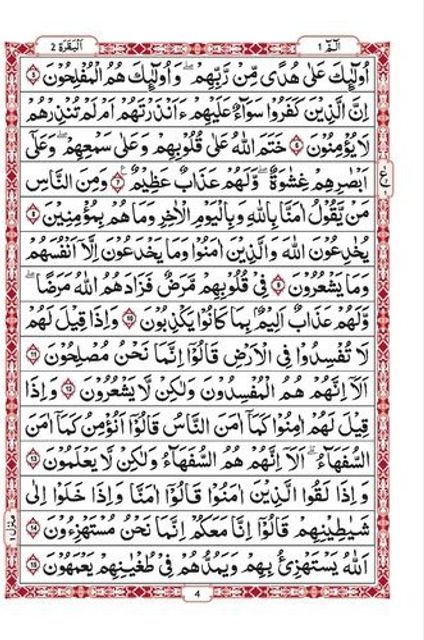 الٓمّٓ ١
اَلْبَقَرَة ٢
اُولٰٓئِكَ عَلٰى هُدًى مِّنْ رَّبِّهِمْ ۖ وَ اُولٰٓئِكَ هُمُ الْمُفْلِحُوْنَ ۝۵
اِنَّ الَّذِيْنَ كَفَرُوْا سَوَآءٌ عَلَيْهِمْ ءَاَنْذَرْتَهُمْ اَمْ لَمْ تُنْذِرْهُمْ
لَا يُؤْمِنُوْنَ ۝۶ خَتَمَ اللّٰهُ عَلٰى قُلُوْبِهِمْ وَعَلٰى سَمْعِهِمْ ۖ وَعَلٰٓى
اَبْصَارِهِمْ غِشَاوَةٌ ۖ وَّلَهُمْ عَذَابٌ عَظِيْمٌ ۝۷ وَمِنَ النَّاسِ
مَنْ يَّقُوْلُ اٰمَنَّا بِاللّٰهِ وَبِالْيَوْمِ الْاٰخِرِ وَمَا هُمْ بِمُؤْمِنِيْنَ ۝۸
يُخٰدِعُوْنَ اللّٰهَ وَالَّذِيْنَ اٰمَنُوْا وَمَا يَخْدَعُوْنَ اِلَّآ اَنْفُسَهُمْ
وَمَا يَشْعُرُوْنَ ۝۹ فِيْ قُلُوْبِهِمْ مَّرَضٌ فَزَادَهُمُ اللّٰهُ مَرَضًا ۚ
وَلَهُمْ عَذَابٌ اَلِيْمٌۢ بِمَا كَانُوْا يَكْذِبُوْنَ ۝۱۰ وَاِذَا قِيْلَ لَهُمْ
لَا تُفْسِدُوْا فِى الْاَرْضِ قَالُوْٓا اِنَّمَا نَحْنُ مُصْلِحُوْنَ ۝۱۱
اَلَآ اِنَّهُمْ هُمُ الْمُفْسِدُوْنَ وَلٰكِنْ لَّا يَشْعُرُوْنَ ۝۱۲ وَاِذَا
قِيْلَ لَهُمْ اٰمِنُوْا كَمَآ اٰمَنَ النَّاسُ قَالُوْٓا اَنُؤْمِنُ كَمَآ اٰمَنَ
السُّفَهَآءُ ؕ اَلَآ اِنَّهُمْ هُمُ السُّفَهَآءُ وَلٰكِنْ لَّا يَعْلَمُوْنَ ۝۱۳
وَ اِذَا لَقُوا الَّذِيْنَ اٰمَنُوْا قَالُوْٓا اٰمَنَّا وَاِذَا خَلَوْا اِلٰى
شَيٰطِيْنِهِمْ قَالُوْٓا اِنَّا مَعَكُمْ اِنَّمَا نَحْنُ مُسْتَهْزِءُوْنَ ۝۱۴
اَللّٰهُ يَسْتَهْزِئُ بِهِمْ وَيَمُدُّهُمْ فِيْ طُغْيَانِهِمْ يَعْمَهُوْنَ ۝۱۵
ع
منزل ١
4